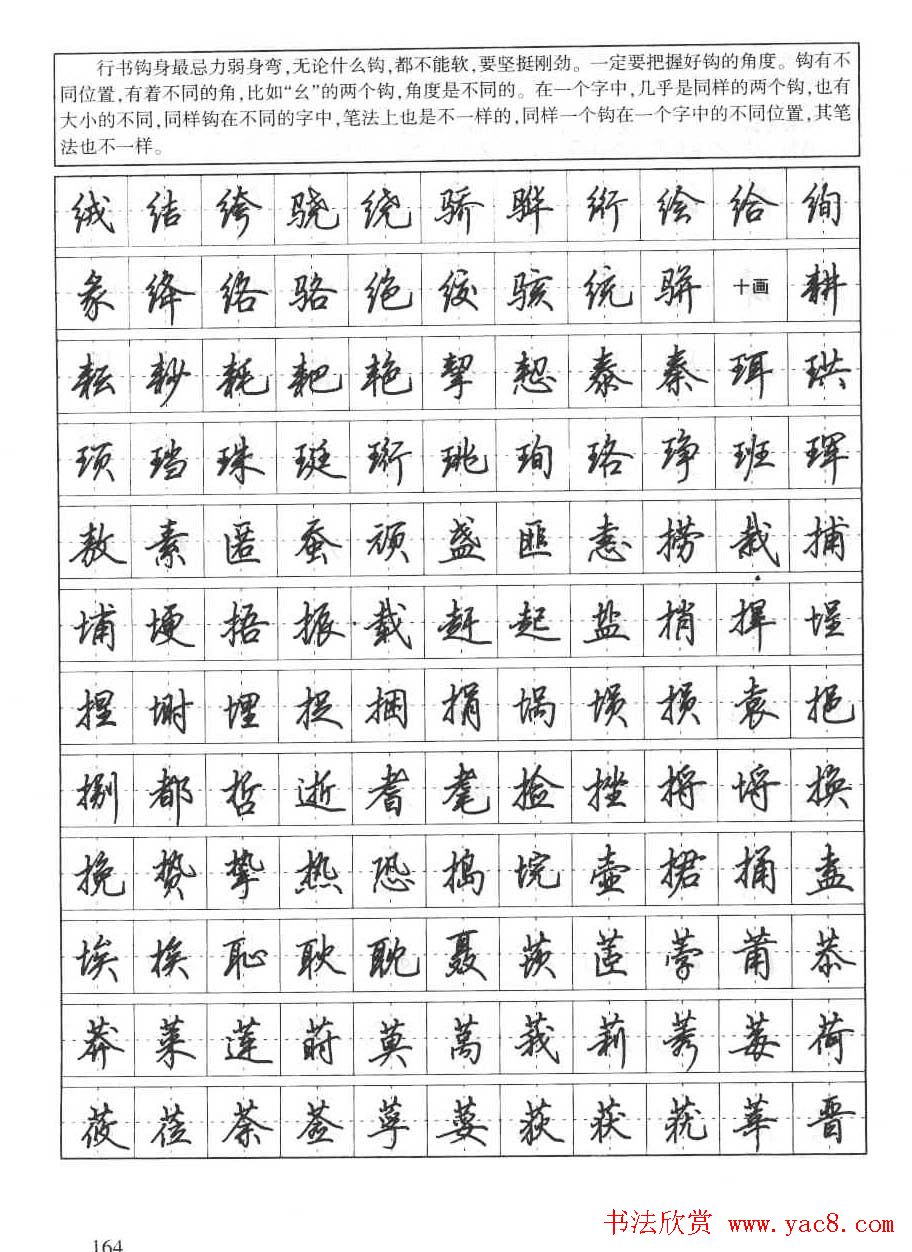 行书钩身最忌力弱身弯,无论什么钩,都不能软,要坚挺刚劲。一定要把握好钩的角度。钩有不
同位置,有着不同的角,比如“幺”的两个钩,角度是不同的。在一个字中,几乎是同样的两个钩,也有
大小的不同,同样钩在不同的字中,笔法上也是不一样的,同样一个钩在一个字中的不同位置,其笔
法也不一样。
绒 结 绔 骁 绕 骄 骅 绗 绘 给 绚
彖 绛 络 骆 绝 绞 骇 统 骈 十画 耕
耘 耖 耗 耙 艳 挈 恝 泰 秦 珥 珙
顼 珰 珠 珽 珩 珧 珣 珞 琤 班 珲
敖 素 匿 蚕 顽 盏 匪 恚 捞 栽 捕
埔 埂 捂 振 载 赶 起 盐 捎 捍 埕
捏 埘 埋 捉 捆 捐 埚 埙 损 袁 挹
捌 都 哲 逝 耆 耄 捡 挫 捋 埒 换
挽 贽 挚 热 恐 捣 垸 壶 捃 捅 盍
埃 挨 耻 耿 耽 聂 莰 茝 莩 莆 恭
莽 莱 莲 莳 莫 莴 莪 莉 莠 莓 荷
莜 莅 荼 莶 莩 荽 荻 获 莸 莘 晋
164
书法欣赏 www.yac8.com